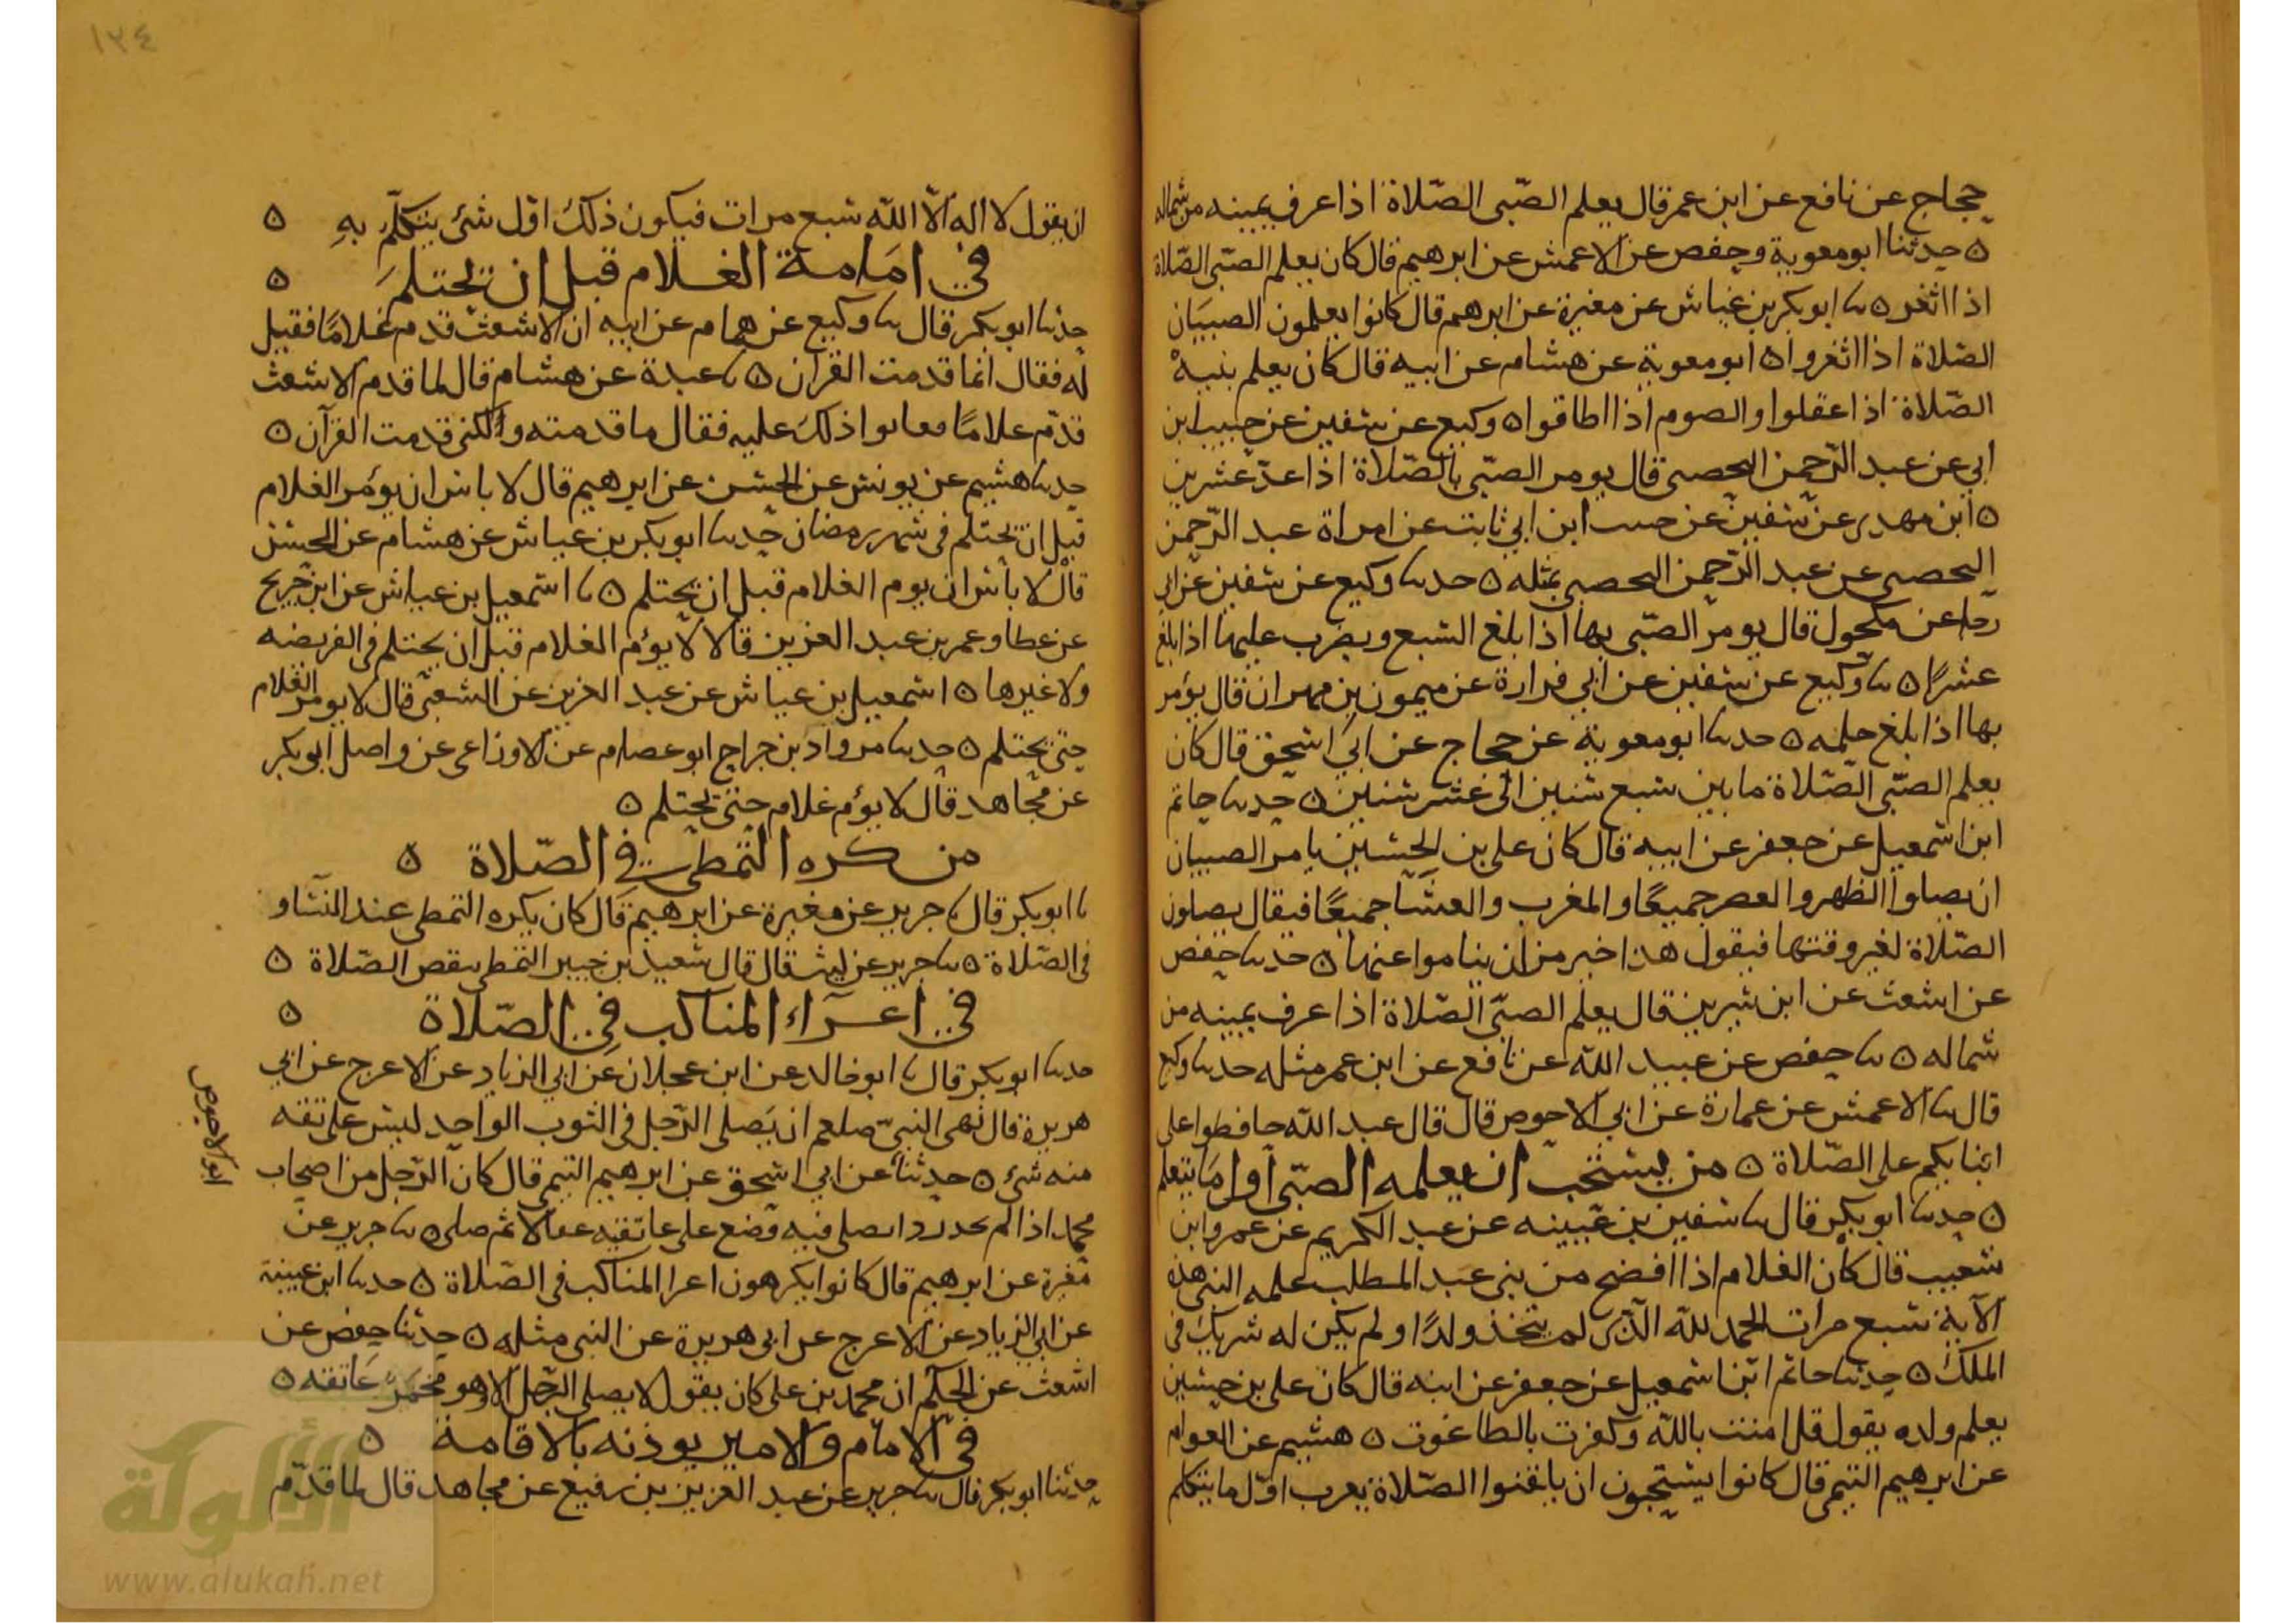 حجاج عن نافع عن ابن عمر قال يعلم الصبى الصلاة اذا عرف يمينه من شماله
ه حدثنا ابو معوية وحفص عن الاعمش عن ابرهيم قال كان يعلم الصبى الصلاة
اذا اثغر ه نا ابو بكر بن عياش عن مغيرة عن ابرهيم قال كانوا يعلمون الصبيان
الصلاة اذا اثغروا ه ابو معوية عن هشام عن ابيه قال كان يعلم بنيه
الصلاة اذا عقلوا والصوم اذا اطاقوا ه وكيع عن سفين عن حبيب ابن
ابي عن عبد الرحمن اليحصبى قال يومر الصبى بالصلاة اذا عد عشرين
ه ابن مهدى عن سفين عن حبيب ابن ابي ثابت عن امراة عبد الرحمن
اليحصبى عن عبد الرحمن اليحصبى بمثله ه حدثنا وكيع عن سفين عن ابى
رجا عن مكحول قال يومر الصبى بها اذا بلغ السبع ويضرب عليها اذا بلغ
عشرا ه نا وكيع عن سفين عن ابي فزارة عن ميمون بن مهران قال يؤمر
بها اذا بلغ حلمه ه حدثنا ابو معوية عن حجاج عن ابى اسحق قال كان
يعلم الصبى الصلاة ما بين سبع سنين الى عشر سنين ه حدثنا حاتم
ابن اسمعيل عن جعفر عن ابيه قال كان على بن الحسين يامر الصبيان
ان يصلوا الظهر والعصر جميعًا والمغرب والعشا جميعًا فيقال يصلون
الصلاة لغير وقتها فيقول هذا خير من ان يناموا عنها ه حدثنا حفص
عن اشعث عن ابن سيرين قال يعلم الصبى الصلاة اذا عرف يمينه من
شماله ه نا حفص عن عبيد الله عن نافع عن ابن عمر مثله حدثنا وكيع
قال نا الاعمش عن عمارة عن ابي الاحوص قال قال عبد الله حافظوا على
ابنايكم على الصلاة ه من يستحب ان يعلمه الصبى اول ما يتعلم
ه حدثنا ابو بكر قال نا سفين بن عيينه عن عبد الكريم عن عمرو ابن
شعيب قال كان الغلام اذا افصح من بنى عبد المطلب علمه النبى هذه
الآية سبع مرات الحمد لله الذى لم يتخذ ولدًا ولم يكن له شريك فى
الملك ه حدثنا حاتم ابن اسمعيل عن جعفر عن ابيه قال كان على بن حسين
يعلم ولده يقول قل امنت بالله وكفرت بالطاغوت ه هشيم عن العوام
عن ابرهيم التيمى قال كانوا يستحبون ان يلقنوا الصلاة يعرب اول ما يتكلم
١٣٤
ان يقول لا اله الا الله سبع مرات فيكون ذلك اول شئ يتكلم به ه
فى امامة الغلام قبل ان يحتلم ه
حدثنا ابو بكر قال نا وكيع عن همام عن ابيه ان الاشعث قدم غلامًا فقيل
له فقال انما قدمت القران ه نا عبدة عن هشام قال لما قدم الاشعث
قدم غلامًا فعابوا ذلك عليه فقال ما قدمته ولكنى قدمت القرآن ه
حدثنا هشيم عن يونس عن الحسن عن ابرهيم قال لا باس ان يؤمر الغلام
قبل ان يحتلم فى شهر رمضان حدثنا ابو بكر بن عياش عن هشام عن الحسن
قال لا باس ان يوم الغلام قبل ان يحتلم ه نا اسمعيل بن عياش عن ابن جريج
عن عطا وعمر بن عبد العزيز قالا لا يؤم الغلام قبل ان يحتلم فى الفريضه
ولا غيرها ه اسمعيل بن عياش عن عبد العزيز عن الشعبى قال لا يومر الغلام
حتى يحتلم ه حدثنا مرواد بن جراح ابو عصام عن الاوزاعى عن واصل ابو بكر
عن مجاهد قال لا يؤم غلام حتى يحتلم ه
من كره التمطى فى الصلاة ه
نا ابو بكر قال نا جرير عن مغيرة عن ابرهيم قال كان يكره التمطى عند النساو
فى الصلاة ه نا جرير عن ليث قال قال سعيد بن جبير التمطى ينقص الصلاة ه
فى اعرآء المناكب فى الصلاة ه
حدثنا ابو بكر قال نا ابو خالد عن ابن عجلان عن ابي الزناد عن الاعرج عن ابي
هريرة قال نهى النبى صلعم ان يصلى الرجل فى الثوب الواحد ليس على تقه
منه شئ ه حدثنا عن ابي اسحق عن ابرهيم التيمى قال كان الرجل من اصحاب
ابو الاحوص
محمد اذا لم يجد ردا يصلى فيه وضع على عاتقيه عقالا ثم صلى ه نا جرير عن
مغيرة عن ابرهيم قال كانوا يكرهون اعرا المناكب فى الصلاة ه حدثنا ابن عيينة
عن ابي الزناد عن الاعرج عن ابى هريرة عن النبى مثله ه حدثنا حفص عن
اشعث عن الحكم ان محمد بن على كان يقول لا يصلى الرجل الا وهو مخمر عاتقه ه
فى الامام والامير يوذنه بالاقامة ه
حدثنا ابو بكر قال نا جرير عن عبد العزيز بن رفيع عن مجاهد قال لما قدم
الألوكة
www.alukah.net